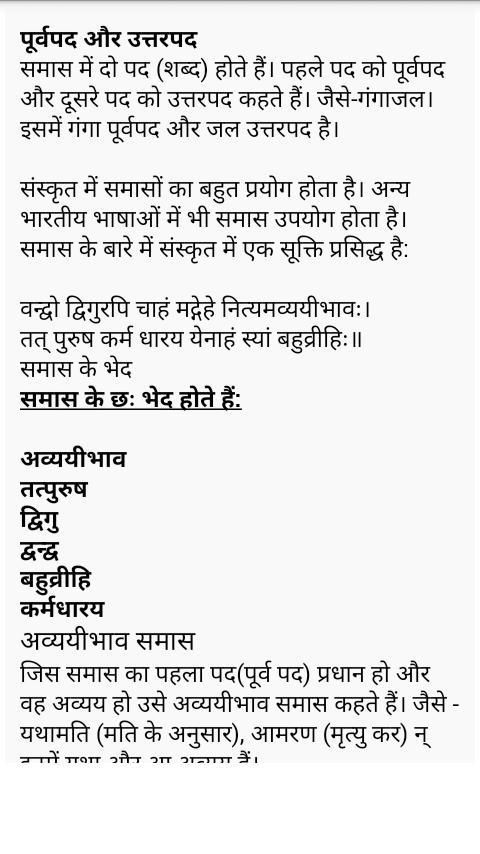 पूर्वपद और उत्तरपद
समास में दो पद (शब्द) होते हैं। पहले पद को पूर्वपद
और दूसरे पद को उत्तरपद कहते हैं। जैसे-गंगाजल।
इसमें गंगा पूर्वपद और जल उत्तरपद है।
संस्कृत में समासों का बहुत प्रयोग होता है। अन्य
भारतीय भाषाओं में भी समास उपयोग होता है।
समास के बारे में संस्कृत में एक सूक्ति प्रसिद्ध है:
वन्द्वो द्विगुरपि चाहं मद्गेहे नित्यमव्ययीभावः।
तत् पुरुष कर्म धारय येनाहं स्यां बहुव्रीहिः॥
समास के भेद
समास के छः भेद होते हैं:
अव्ययीभाव
तत्पुरुष
द्विगु
द्वन्द्व
बहुव्रीहि
कर्मधारय
अव्ययीभाव समास
जिस समास का पहला पद(पूर्व पद) प्रधान हो और
वह अव्यय हो उसे अव्ययीभाव समास कहते हैं। जैसे -
यथामति (मति के अनुसार), आमरण (मृत्यु कर) न्